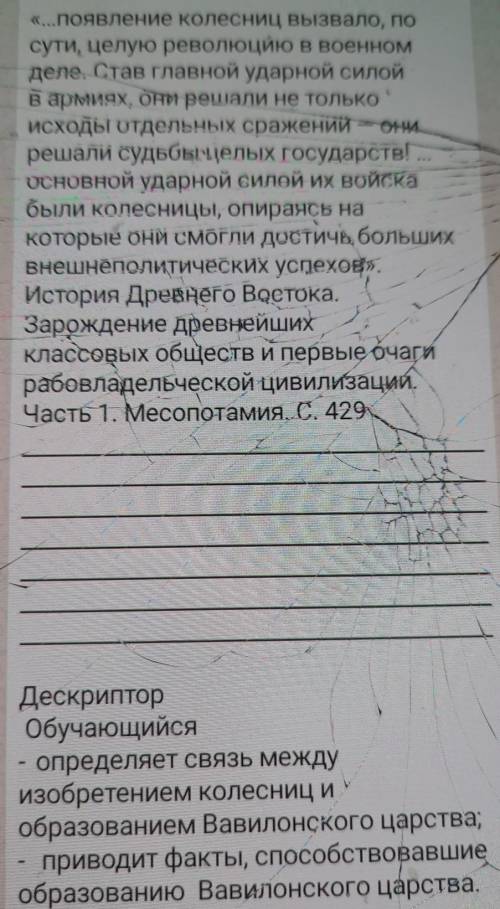 «...появление колесниц вызвало, по
сути, целую революцию в военном
деле. Став главной ударной силой
в армиях, они решали не только
исходы отдельных сражений – они
решали судьбы целых государств! ...
основной ударной силой их войска
были колесницы, опираясь на
которые они смогли достичь больших
внешнеполитических успехов».
История Древнего Востока.
Зарождение древнейших
классовых обществ и первые очаги
рабовладельческой цивилизации.
Часть 1. Месопотамия. С. 429
Дескриптор
Обучающийся
- определяет связь между
изобретением колесниц и
образованием Вавилонского царства;
- приводит факты, способствовавшие
образованию Вавилонского царства.